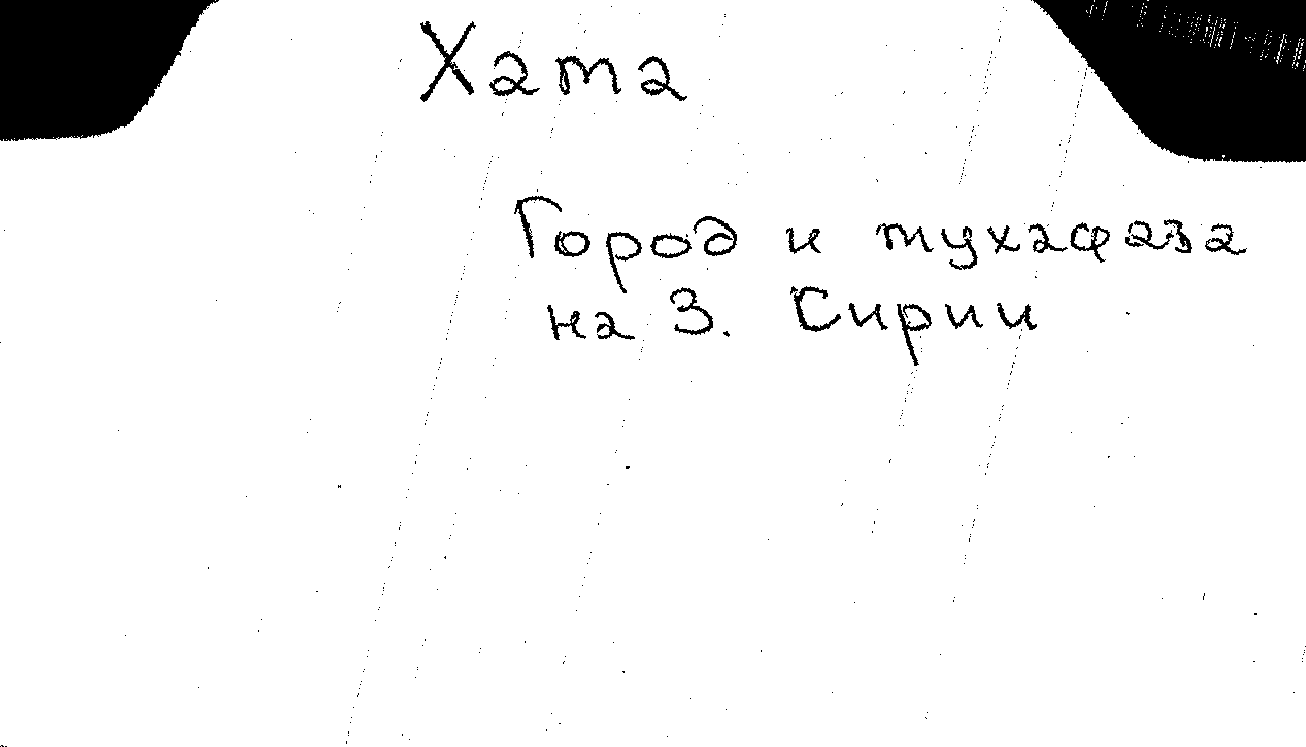 Хата
Город и мухафаза
на З. Сирии